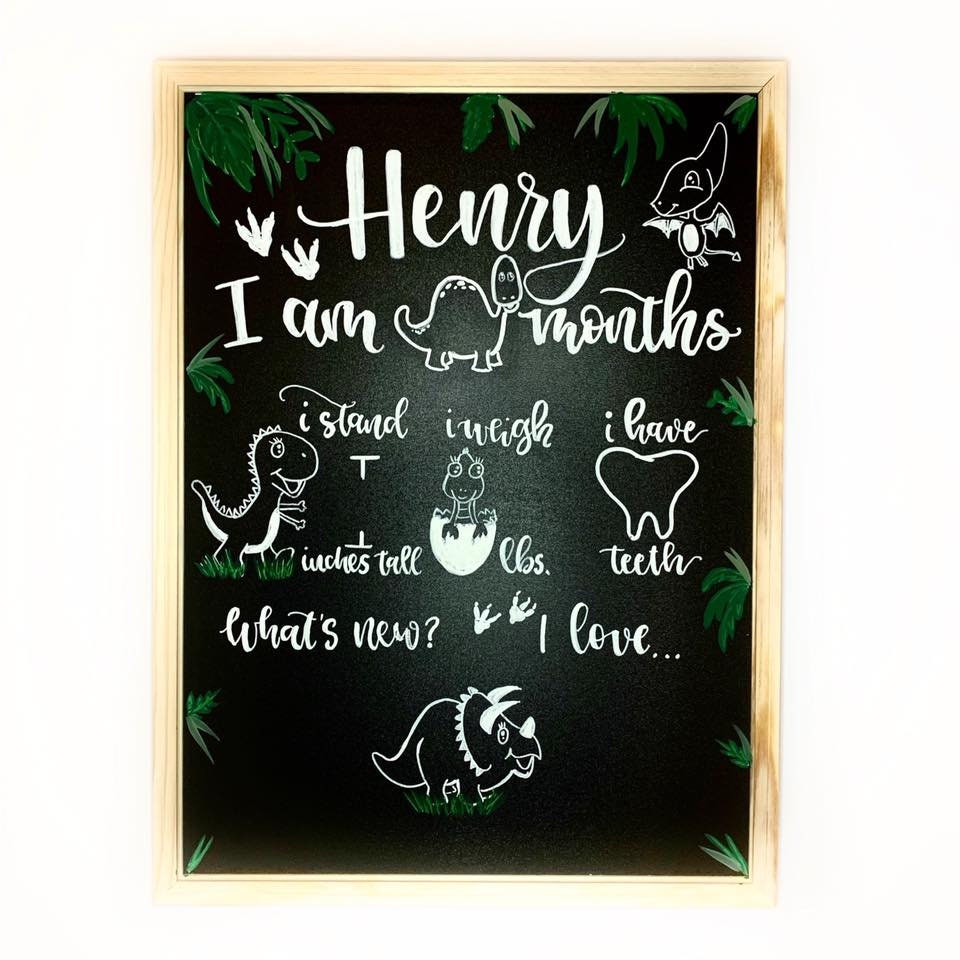 Henry
I am months
i stand i weigh i have
inches tall lbs. teeth
What's new? I love...